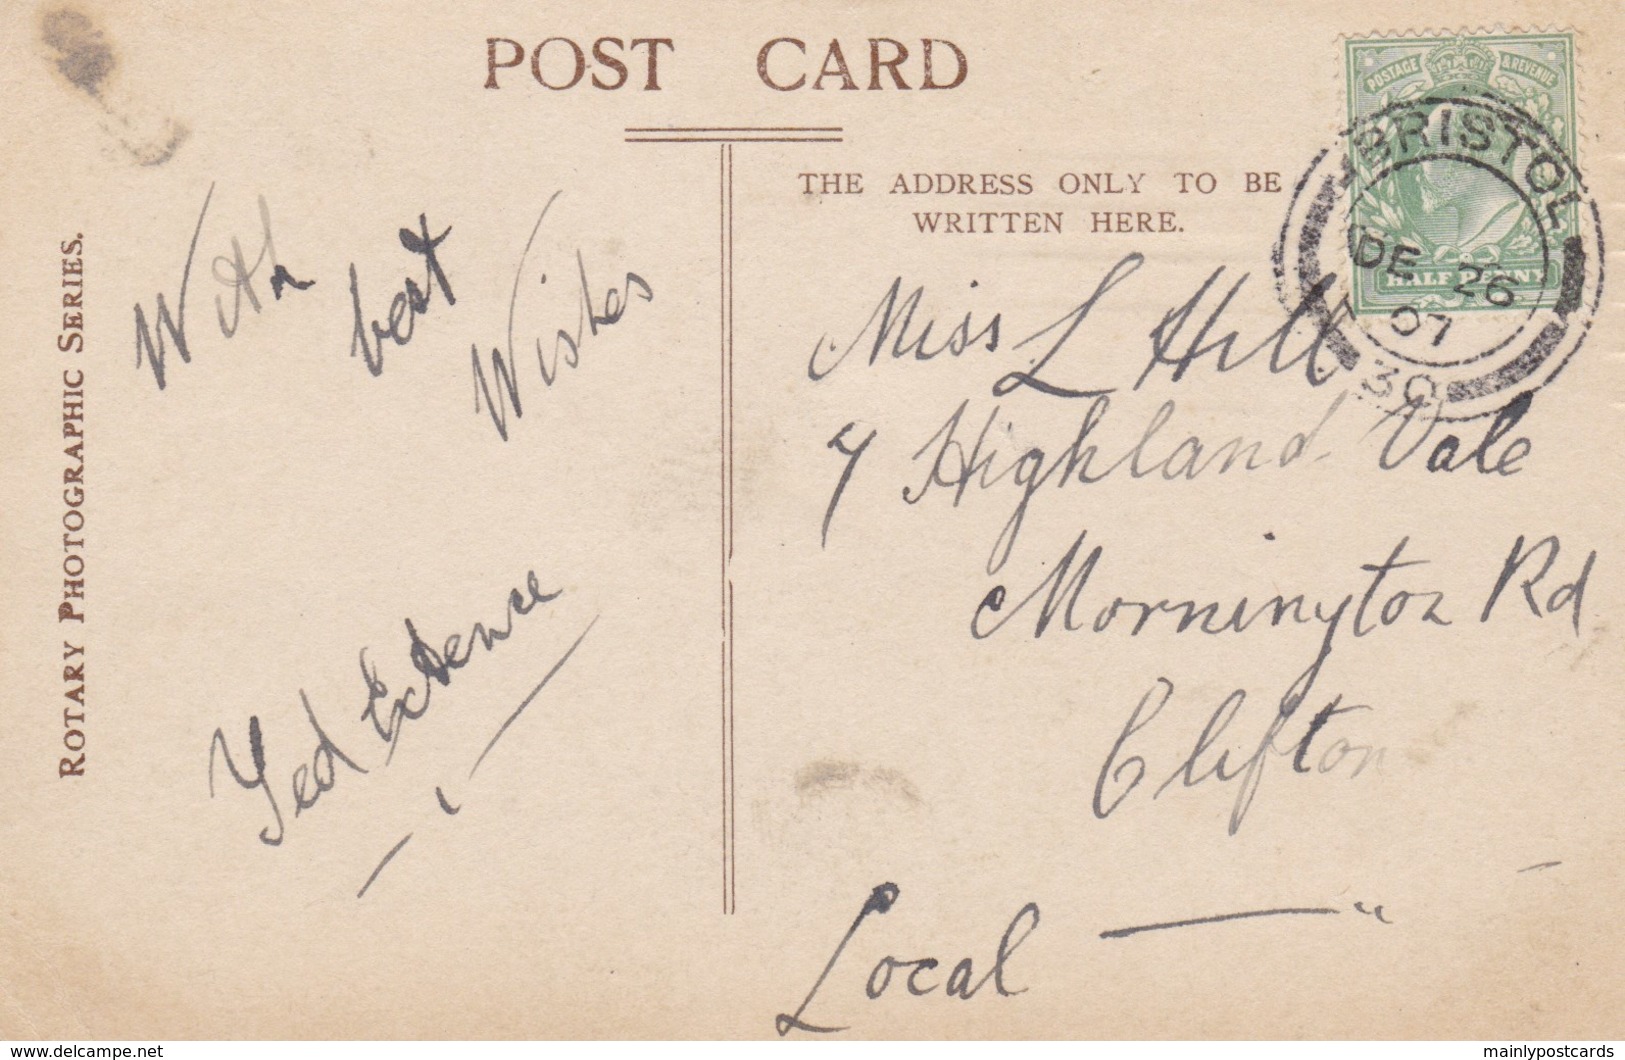 POST CARD
THE ADDRESS ONLY TO BE
WRITTEN HERE.
ROTARY PHOTOGRAPHIC SERIES.
With
best
Wishes
POSTAGE & REVENUE
HALF PENNY
BRISTOL
DE 26
07
30
Miss L Hill
7 Highland Vale
Mornington Rd
Clifton
Local
delcampe.net
mainlypostcards